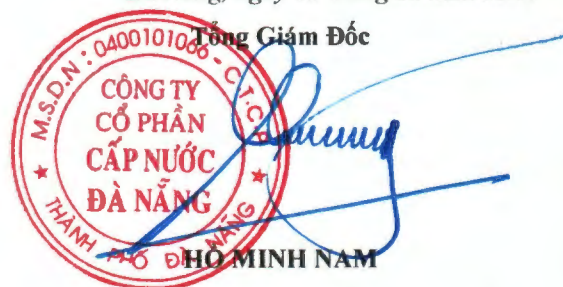 Tổng Giám Đốc
M.S.D.N: 0400101066 - C.T.C.P
CÔNG TY
CỔ PHẦN
CẤP NƯỚC
ĐÀ NẴNG
THÀNH PHỐ ĐÀ NẴNG
HỒ MINH NAM